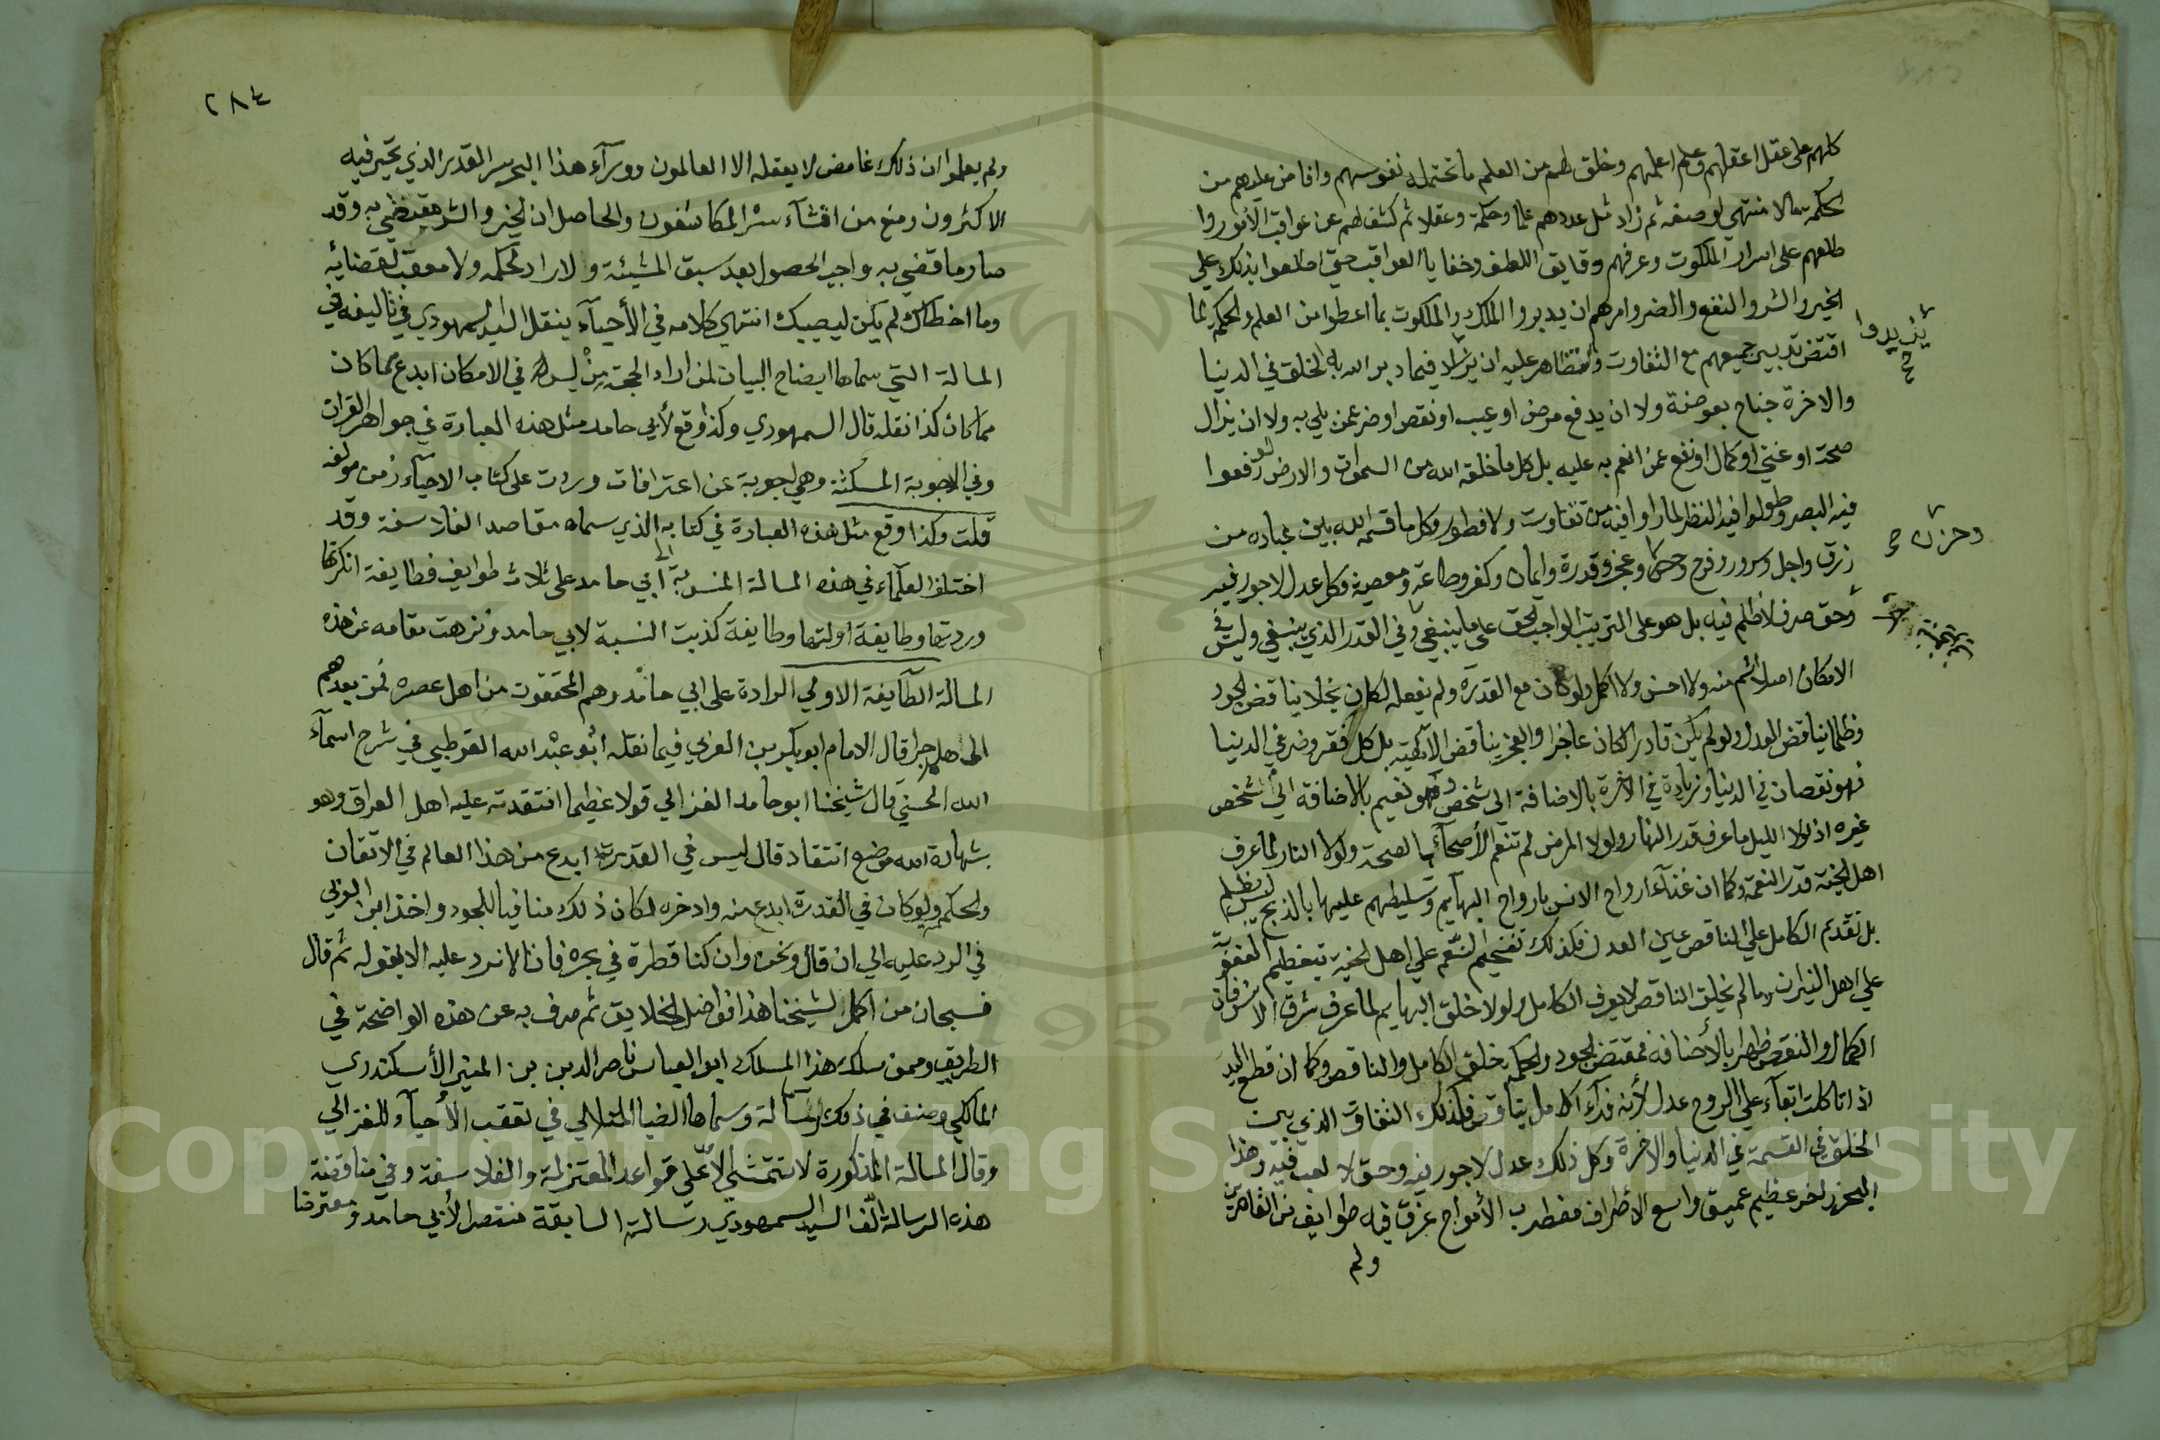 كلهم على عقل اعقلهم وعلم اعلمهم وخلق لهم من العلم ما تحتمله نفوسهم وافاض عليهم من
الحكمة مالا منتهى لوصفه ثم زاد مثل عددهم علما وحكمة وعقلا ثم كشف لهم عن عواقب الامور وا
طلعهم على اسرار الملكوت وعرفهم دقايق اللطف وخفايا العواقب حتى اطلعوا بذلك على
الخير والشر والنفع والضر وامرهم ان يدبروا الملك والملكوت بما اعطوا من العلم والحكمة لما
اقتضى تدبير جميعهم مع التفاوت والتظاهر عليه ان يزاد فيما دبر الله به الخلق في الدنيا
يزيدوا صح
والاخرة جناح بعوضة ولا ان يدفع مرض او عيب او نقص او ضر عمن بلي به ولا ان يزال
صحة او غنى او كمال او نفع عمن انعم به عليه بل كل ما خلقه الله من السموات والارض لو رفعوا
فيه البصر وطولوا فيه النظر لما راوا فيه من تفاوت ولا فطور وكل ما قسمه الله بين عباده من
وحزن صح
رزق واجل وسرور وفرح وعجز وقدرة وايمان وكفر وطاعة ومعصية وكل عدل لا جور فيه
وحق صرف لا ظلم فيه بل هو على الترتيب الواجب الحق على ما ينبغي وفي القدر الذي ينبغي وليس في
الامكان اصلا اتم منه ولا احسن ولا اكمل ولو كان مع القدرة ولم يفعله لكان بخلا يناقض الجود
وظلما يناقض العدل ولو لم يكن قادرا لكان عاجزا والعجز يناقض الالهية بل كل فقر وضر في الدنيا
فهو نقصان في الدنيا وزيادة في الاخرة بالاضافة الى شخص فهو نعيم بالاضافة الى شخص
غيره اذ لولا الليل ما عرف قدر النهار ولولا المرض لم تنعم الأصحاء بالصحة ولولا النار لما عرف
اهل الجنة قدر النعمة وكما ان غذاء ارواح الانس بارواح البهايم وتسليطهم عليها بالذبح ليس بظلم
بل تقديم الكامل على الناقص عين العدل فكذلك تفخيم النعم على اهل الجنة بتعظيم العقوبة
على اهل النيران وما لم يخلق الناقص لا يعرف الكامل ولولا خلق البهايم لما عرف شرف الانس فان
الكمال والنقص ظهرا بالأضافة فمقتضى الجود والحكمة خلق الكامل والناقص وكما ان قطع اليد
اذا تاكلت ابقاء على الروح عدل لأنه فداء كامل بناقص فكذلك التفاوت الذي بين
الخلق في القسمة في الدنيا والاخرة وكل ذلك عدل لا جور فيه وحق لا لعب فيه وهذا
البحر زاخر عظيم عميق واسع الأطراف مضطرب الأمواج غرق فيه طوايف من القاصرين
ولم
٢٨٤
ولم يعلموا ان ذلك غامض لا يعقله الا العالمون وورآء هذا البحر سر القدر الذي تحير فيه
الاكثرون ومنع من افشآء سره المكاشفون والحاصل ان الخير والشر مقتضي به وقد
صار ما قضي به واجب الحصول بعد سبق المشيئة ولا راد لحكمه ولا معقب لقضائه
وما اخطاك لم يكن ليصيبك انتهى كلامه في الأحيآء بنقل السيد السمهودي في تاليفه في
المسالة التي سماها ايضاح البيان لمن اراد الحجة من ليس في الامكان ابدع مما كان
مما كان كذا نقله قال السمهودي وكذا وقع لأبي حامد مثل هذه العبارة في جواهر القران
وفي الاجوبة المسكتة وهي اجوبة عن اعتراضات وردت على كتاب الاحيآء زمن مولفه
قلت وكذا وقع مثل هذه العبارة في كتابه الذي سماه مقاصد الفلاسفة وقد
اختلف العلمآء في هذه المسالة المنسوبة الى ابي حامد على ثلاث طوايف فطايفة انكرتها
وردتها وطايفة اولتها وطايفة كذبت النسبة لابي حامد ونزهت مقامه عن هذه
المسالة الطايفة الاولى الرادة على ابي حامد وهم المحققون من اهل عصره فمن بعدهم
الى هلم جرا قال الامام ابو بكر بن العربي فيما نقله أبو عبد الله القرطبي في شرح اسمآء
الله الحسنى قال شيخنا ابو حامد الغزالي قولا عظيما انتقدته عليه اهل العراق وهو
بشهادة الله موضع انتقاد قال ليس في القدرة ابدع من هذا العالم في الاتقان
والحكمة ولو كان في القدرة ابدع منه وادخره لكان ذلك منافيا للجود واخذ ابن العربي
في الرد عليه الى ان قال ونحن وان كنا قطرة في بحره فانا لا نرد عليه الا بقوله ثم قال
فسبحان من اكمل لشيخنا هذا فواضل الخلايق ثم صرف به عن هذه الواضحة في
الطريق وممن سلك هذا المسلك ابو العباس ناصر الدين بن المنير الأسكندري
المالكي وصنف في ذلك رسالة وسماها الضيا المتلالي في تعقب الأحيآء للغزالي
وقال المسالة المذكورة لا تتمشى الا على قواعد المعتزلة والفلاسفة وفي مناقضة
هذه الرسالة الف السيد السمهودي رسالته السابقة منتصرا لأبي حامد ومعترضا
Copyright © King Saud University
1957